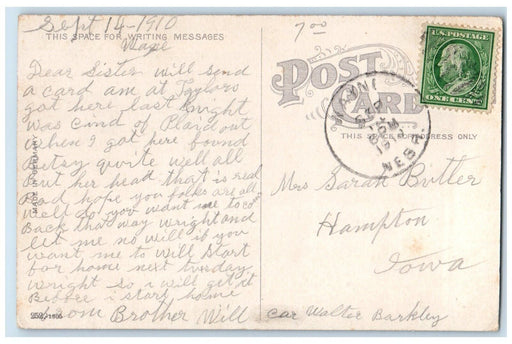 Sept 14-1910
THIS SPACE FOR WRITING MESSAGES
Dear Sister will send
a card am at Taylors
got here last Knight
was cind of Plaid out
when I got here found
Betsy quite well all
But her head that is real
Bad hope you folks are all
well do you want me to come
Back that way wright and
let me no will if you
want me to will start
for home next tusday
wright so i will get it
Before i start home
from Brother Will
MADE IN GERMANY
7 00
POST CARD
THIS SPACE FOR ADDRESS ONLY
U.S. POSTAGE
ONE CENT
SEP
NEBR
Mrs Sarah Butler
Hampton
Iowa
Car Walter Barkley